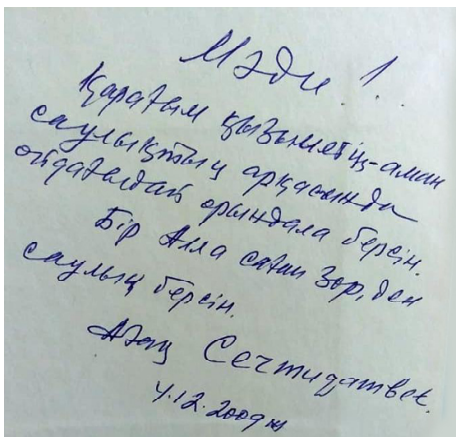 Мәди!..
Қарағым қызметің-аман
саулықтың арқасында
ойдағыдай орындала берсін.
Бір Алла саған зор, ден
саулық берсін.
Атаң
4.12.2009ж